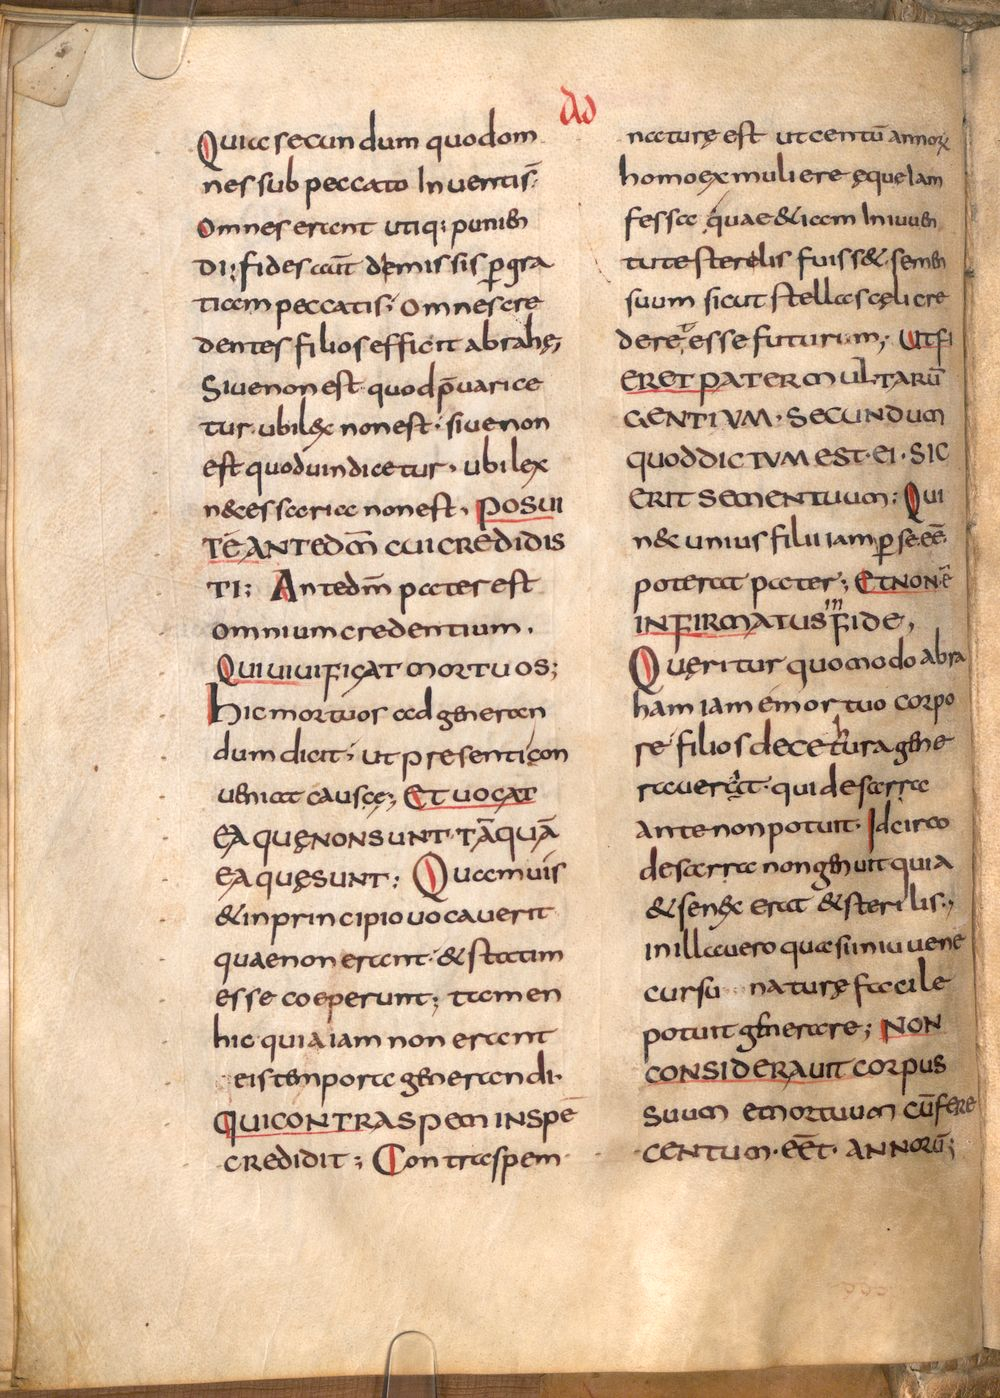 AD
Quia secundum quod om
nes sub peccato Inventi s̄
omnes erant utiq; punien
di; fides aut̄ demissis ꝑ gra
tiam peccatis; omnes cre
dentes filios efficit abrahę;
Sive non est quod p̄varice
tur. ubi lęx non est. sive non
est quod vindicetur. ubi lex
n&essaria non est. POSUI
TE ANTE DM̄ CUI CREDIDIS
TI; Ante dm̄ pater est
omnium credentium.
QUI VIVIFICAT MORTUOS;
hic mortuos ad generan
dum dicit; ut presenti con
veniat causęę; ET VOCAT
EA QUĘ NON SUNT TĀQUĀ
EA QUĘ SUNT; Quamvis
& in principio vocaverit
quae non erant. & statim
esse coeperunt; tamen
hic quia iam non erant
eis tempora generandi.
QUI CONTRA SPEM IN SPĒ
CREDIDIT; Contra spem
naturę est ut centū annoꝝ
homo ex muliere ęque lam
fessa quae & iam In iuven
tute sterelis fuiss& semen
suum sicut stellas cęli cre
deret esse futurum; UT FI
ERET PATER MULTARŪ
GENTIUM. SECUNDUM
QUOD DICTUM EST. EI. SIC
ERIT SEMEN TUUM; Qui
n& unius filii iam ꝑ se eē
poterat pater; ET NON Ē
INFIRMATUS IN FIDE,
Quęritur quomodo abra
ham iam emortuo corpo
re filios de cethura gene
raverat. qui de sarra
ante non potuit. Idcirco
de sarra non genuit quia
& senęx erat & sterilis;
in illa vero quasi in iuvene
cursu naturę facile
potuit generare; NON
CONSIDERAVIT CORPUS
SUUM EMORTUUM CŪ FERE
CENTUM. EĒT. ANNORŪ;